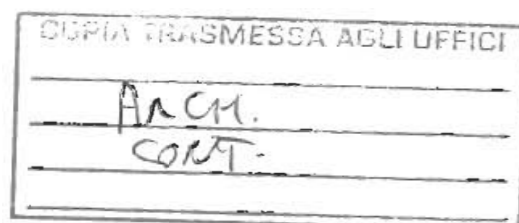 COPIA TRASMESSA AGLI UFFICI
ARCH.
CONT.